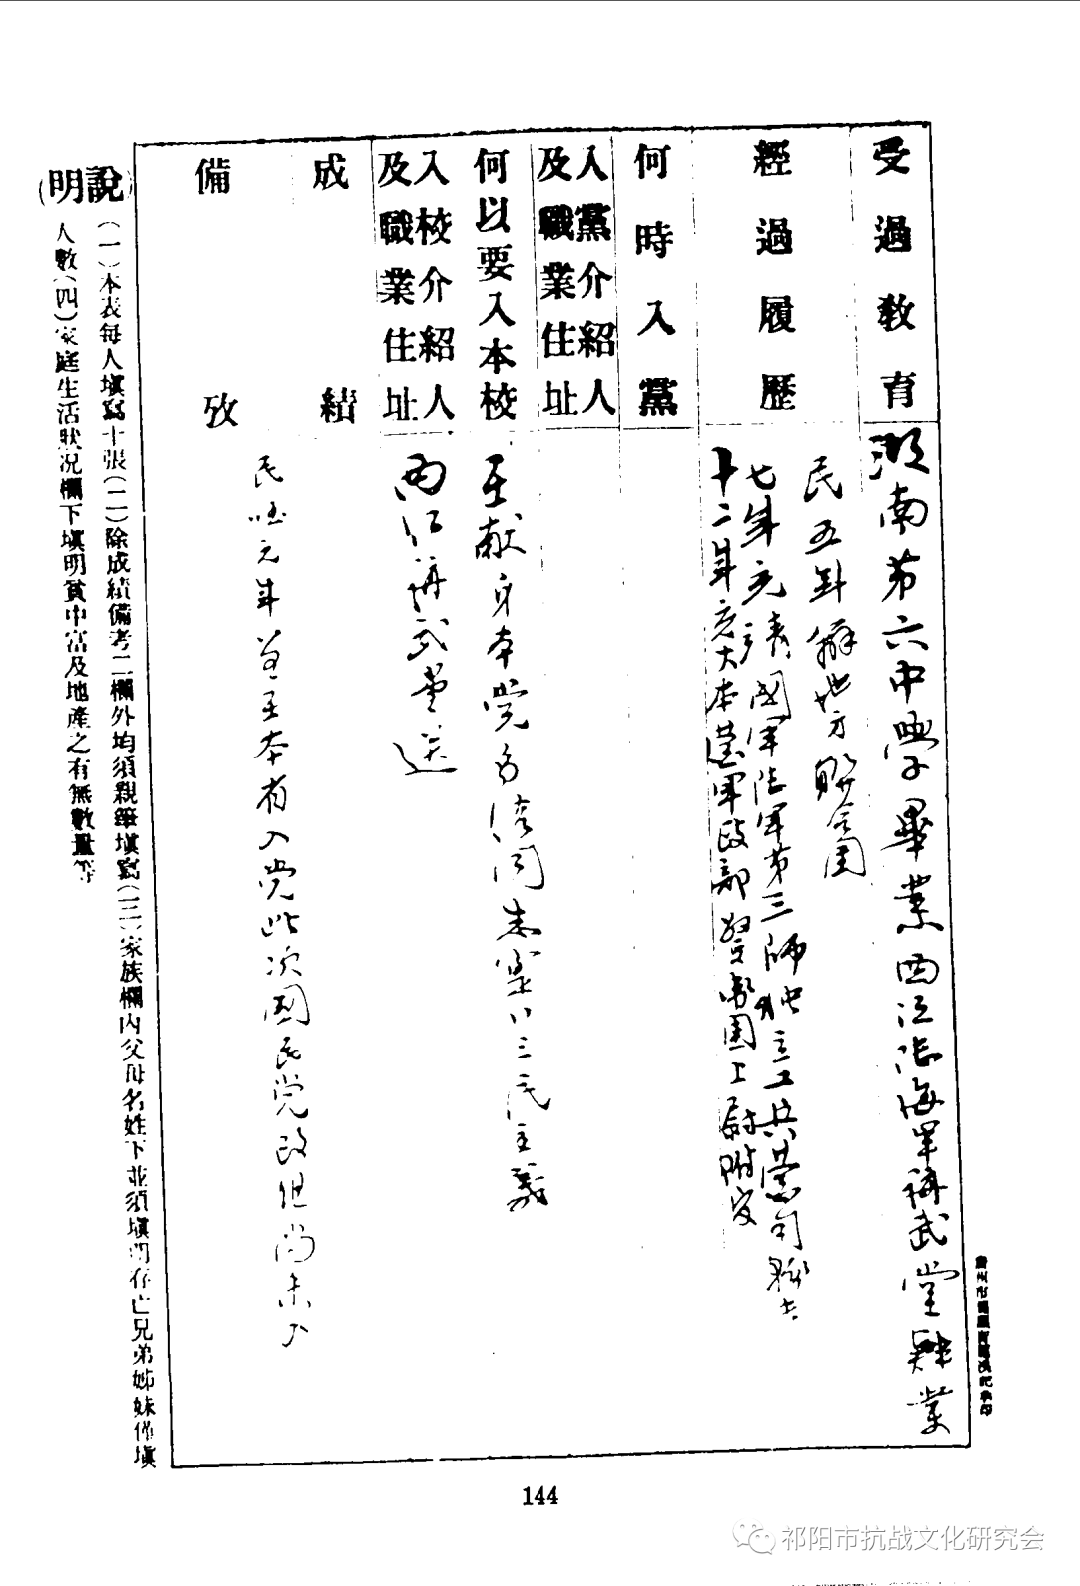 受過教育
湖南第六中學畢業西江陸海軍講武堂肄業
經過履歷
民五年辦地方聯合團
七年充靖國軍陸軍第三師独立工兵營司務長
十二年充大本營軍政部警衛團上尉附官
何時入黨
入黨介紹人及職業住址
何以要入本校
至献身本党
三民主義
入校介紹人及職業住址
西江講武堂送
成績
備攷
民國元年曾在本省入党此次国民党改但尚未入
(說明)
(一)本表每人塡寫十張(二)除成績備考二欄外均須親筆塡寫(三)家族欄內父母名姓下並須塡明存亡兄弟姊妹僅塡
人數(四)家庭生活狀况欄下塡明貧中富及地產之有無數量等
144
祁阳市抗战文化研究会